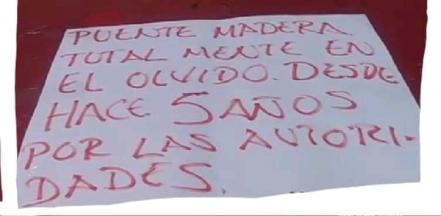 PUENTE MADERA
TOTAL MENTE EN
EL OLVIDO. DESDE
HACE 5 AÑOS
POR LAS AUTORI-
DADES.